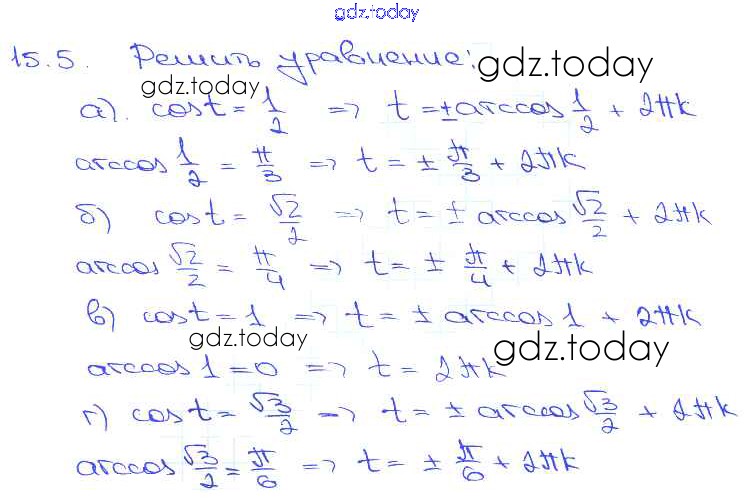 gdz.today
15.5. Решить уравнение:
gdz.today gdz.today
а). cos t = 1/2 => t = ± arccos 1/2 + 2πk
arccos 1/2 = π/3 => t = ± π/3 + 2πk
б) cos t = √2/2 => t = ± arccos √2/2 + 2πk
arccos √2/2 = π/4 => t = ± π/4 + 2πk
в) cos t = 1 => t = ± arccos 1 + 2πk
gdz.today gdz.today
arccos 1 = 0 => t = 2πk
г) cos t = √3/2 => t = ± arccos √3/2 + 2πk
arccos √3/2 = π/6 => t = ± π/6 + 2πk